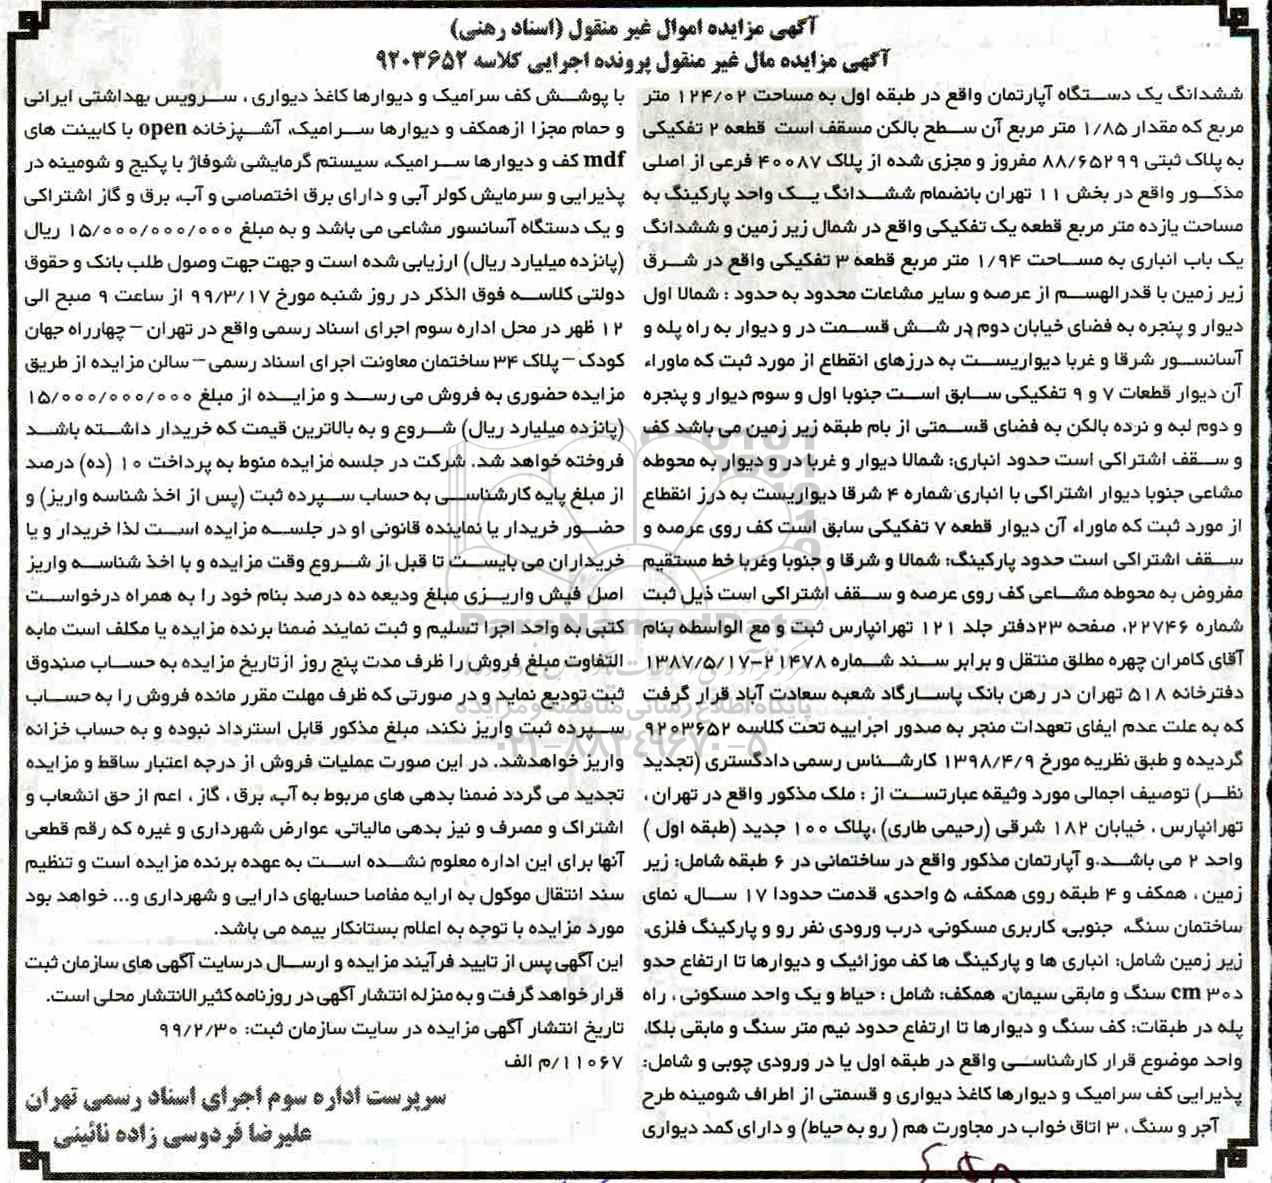 آگهی مزایده اموال غیر منقول (اسناد رهنی)
آگهی مزایده مال غیر منقول پرونده اجرایی کلاسه ۹۲۰۳۶۵۲
ششدانگ یک دستگاه آپارتمان واقع در طبقه اول به مساحت ۱۲۴/۰۲ متر
مربع که مقدار ۱/۸۵ متر مربع آن سطح بالکن مسقف است قطعه ۲ تفکیکی
به پلاک ثبتی ۸۸/۶۵۲۹۹ مفروز و مجزی شده از پلاک ۴۰۰۸۷ فرعی از اصلی
مذکور واقع در بخش ۱۱ تهران بانضمام ششدانگ یک واحد پارکینگ به
مساحت یازده متر مربع قطعه یک تفکیکی واقع در شمال زیر زمین و ششدانگ
یک باب انباری به مساحت ۱/۹۴ متر مربع قطعه ۳ تفکیکی واقع در شرق
زیر زمین با قدرالهسم از عرصه و سایر مشاعات محدود به حدود : شمالا اول
دیوار و پنجره به فضای خیابان دوم در شش قسمت در و دیوار به راه پله و
آسانسور شرقا و غربا دیواریست به درزهای انقطاع از مورد ثبت که ماوراء
آن دیوار قطعات ۷ و ۹ تفکیکی سابق است جنوبا اول و سوم دیوار و پنجره
و دوم لبه و نرده بالکن به فضای قسمتی از بام طبقه زیر زمین می باشد کف
و سقف اشتراکی است حدود انباری: شمالا دیوار و غربا در و دیوار به محوطه
مشاعی جنوبا دیوار اشتراکی با انباری شماره ۴ شرقا دیواریست به درز انقطاع
از مورد ثبت که ماوراء آن دیوار قطعه ۷ تفکیکی سابق است کف روی عرصه و
سقف اشتراکی است حدود پارکینگ: شمالا و شرقا و جنوبا وغربا خط مستقیم
مفروض به محوطه مشاعی کف روی عرصه و سقف اشتراکی است ذیل ثبت
شماره ۲۲۷۴۶، صفحه ۲۳دفتر جلد ۱۲۱ تهرانپارس ثبت و مع الواسطه بنام
آقای کامران چهره مطلق منتقل و برابر سند شماره ۲۱۴۷۸-۱۳۸۷/۵/۱۷
دفترخانه ۵۱۸ تهران در رهن بانک پاسارگاد شعبه سعادت آباد قرار گرفت
که به علت عدم ایفای تعهدات منجر به صدور اجراییه تحت کلاسه ۹۲۰۳۶۵۲
گردیده و طبق نظریه مورخ ۱۳۹۸/۴/۹ کارشناس رسمی دادگستری (تجدید
نظر) توصیف اجمالی مورد وثیقه عبارتست از : ملک مذکور واقع در تهران ،
تهرانپارس ، خیابان ۱۸۲ شرقی (رحیمی طاری) ،پلاک ۱۰۰ جدید (طبقه اول )
واحد ۲ می باشد.و آپارتمان مذکور واقع در ساختمانی در ۶ طبقه شامل: زیر
زمین ، همکف و ۴ طبقه روی همکف، ۵ واحدی، قدمت حدودا ۱۷ سال، نمای
ساختمان سنگ، جنوبی، کاربری مسکونی، درب ورودی نفر رو و پارکینگ فلزی،
زیر زمین شامل: انباری ها و پارکینگ ها کف موزائیک و دیوارها تا ارتفاع حدو
د۳۰ cm سنگ و مابقی سیمان، همکف: شامل : حیاط و یک واحد مسکونی ، راه
پله در طبقات: کف سنگ و دیوارها تا ارتفاع حدود نیم متر سنگ و مابقی بلکا،
واحد موضوع قرار کارشناسی واقع در طبقه اول یا در ورودی چوبی و شامل:
پذیرایی کف سرامیک و دیوارها کاغذ دیواری و قسمتی از اطراف شومینه طرح
آجر و سنگ ، ۳ اتاق خواب در مجاورت هم ( رو به حیاط) و دارای کمد دیواری
با پوشش کف سرامیک و دیوارها کاغذ دیواری ، سرویس بهداشتی ایرانی
و حمام مجزا ازهمکف و دیوارها سرامیک، آشپزخانه open با کابینت های
mdf کف و دیوارها سرامیک، سیستم گرمایشی شوفاژ با پکیج و شومینه در
پذیرایی و سرمایش کولر آبی و دارای برق اختصاصی و آب، برق و گاز اشتراکی
و یک دستگاه آسانسور مشاعی می باشد و به مبلغ ۱۵/۰۰۰/۰۰۰/۰۰۰ ریال
(پانزده میلیارد ریال) ارزیابی شده است و جهت جهت وصول طلب بانک و حقوق
دولتی کلاسه فوق الذکر در روز شنبه مورخ ۹۹/۳/۱۷ از ساعت ۹ صبح الی
۱۲ ظهر در محل اداره سوم اجرای اسناد رسمی واقع در تهران – چهارراه جهان
کودک – پلاک ۳۴ ساختمان معاونت اجرای اسناد رسمی – سالن مزایده از طریق
مزایده حضوری به فروش می رسد و مزایده از مبلغ ۱۵/۰۰۰/۰۰۰/۰۰۰
(پانزده میلیارد ریال) شروع و به بالاترین قیمت که خریدار داشته باشد
فروخته خواهد شد. شرکت در جلسه مزایده منوط به پرداخت ۱۰ (ده) درصد
از مبلغ پایه کارشناسی به حساب سپرده ثبت (پس از اخذ شناسه واریز) و
حضور خریدار یا نماینده قانونی او در جلسه مزایده است لذا خریدار و یا
خریداران می بایست تا قبل از شروع وقت مزایده و با اخذ شناسه واریز
اصل فیش واریزی مبلغ ودیعه ده درصد بنام خود را به همراه درخواست
کتبی به واحد اجرا تسلیم و ثبت نمایند ضمنا برنده مزایده یا مکلف است مابه
التفاوت مبلغ فروش را ظرف مدت پنج روز ازتاریخ مزایده به حساب صندوق
ثبت تودیع نماید و در صورتی که ظرف مهلت مقرر مانده فروش را به حساب
سپرده ثبت واریز نکند، مبلغ مذکور قابل استرداد نبوده و به حساب خزانه
واریز خواهدشد. در این صورت عملیات فروش از درجه اعتبار ساقط و مزایده
تجدید می گردد ضمنا بدهی های مربوط به آب، برق ، گاز ، اعم از حق انشعاب و
اشتراک و مصرف و نیز بدهی مالیاتی، عوارض شهرداری و غیره که رقم قطعی
آنها برای این اداره معلوم نشده است به عهده برنده مزایده است و تنظیم
سند انتقال موکول به ارایه مفاصا حسابهای دارایی و شهرداری و... خواهد بود
مورد مزایده با توجه به اعلام بستانکار بیمه می باشد.
این آگهی پس از تایید فرآیند مزایده و ارسال درسایت آگهی های سازمان ثبت
قرار خواهد گرفت و به منزله انتشار آگهی در روزنامه کثیرالانتشار محلی است.
تاریخ انتشار آگهی مزایده در سایت سازمان ثبت: ۹۹/۲/۳۰
۱۱۰۶۷/م الف
سرپرست اداره سوم اجرای اسناد رسمی تهران
علیرضا فردوسی زاده نائینی
ParsNamadData
پایگاه اطلاع رسانی مناقصه و مزایده
۰۲۱-۸۸۳۴۹۶۷۰-۵